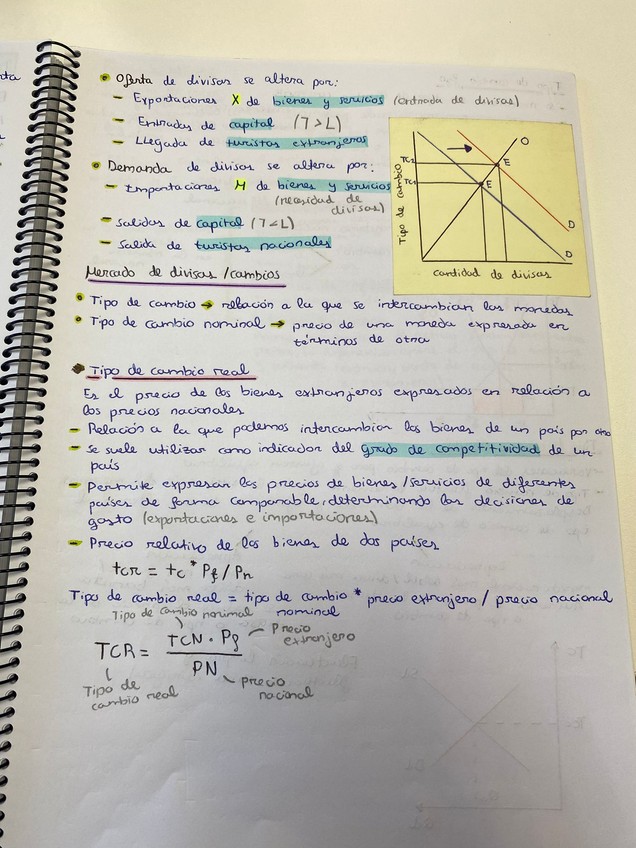 Oferta de divisas se altera por:
- Exportaciones X de bienes y servicios (entrada de divisas)
- Entradas de capital (7>L)
- Llegada de turistas extranjeros
Demanda de divisas se altera por:
- Importaciones M de bienes y servicios
(necesidad de
divisas)
- Salidas de capital (7<L)
- Salida de turistas nacionales
Tipo de cambio
TC2
TC1
O
E
E
D
D
cantidad de divisas
Mercado de divisas/cambios
Tipo de cambio → relación a la que se intercambian las monedas
Tipo de cambio nominal → precio de una moneda expresada en
términos de otra
Tipo de cambio real
Es el precio de los bienes extranjeros expresados en relación a
los precios nacionales
- Relación a la que podemos intercambiar los bienes de un país por otro
- Se suele utilizar como indicador del grado de competitividad de un
país
- Permite expresar los precios de bienes/servicios de diferentes
países de forma comparable, determinando las decisiones de
gasto (exportaciones e importaciones)
- Precio relativo de los bienes de dos países
tcr = tc * Pf / Pn
Tipo de cambio real = tipo de cambio * precio extranjero / precio nacional
nominal
Tipo de cambio nominal
TCR = TCN · Pf / PN
Precio
extranjero
Tipo de
cambio real
precio
nacional